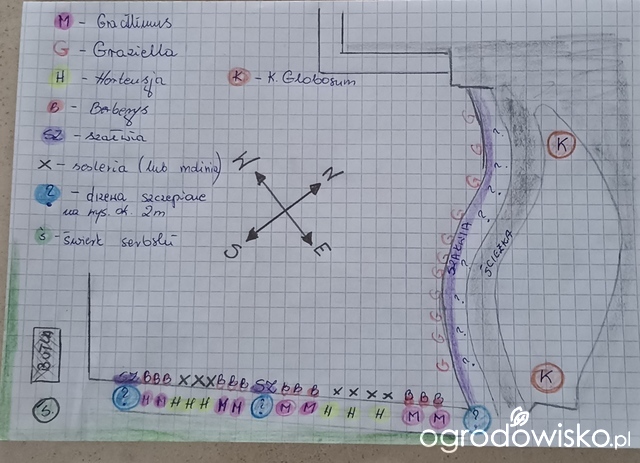 M - Gracillimus
G - Graziella
H - Hortensja
B - Berberys
SZ - szałwia
X - sesleria (lub molinia)
? - drzewa szczepione
na wys. ok. 2m
Ś - świerk serbski
K - K. Globosum
W N
S E
G
G
G
G
G
G
G
G
G
G
G
SZAŁWIA
?
?
?
?
?
?
?
?
ŚCIEŻKA
K
K
BUTLA
Ś
SZ B B B X X X B B B SZ B B B X X X X B B B
? M M H H H M M ? M M H H H M M ?
ogrodowisko.pl